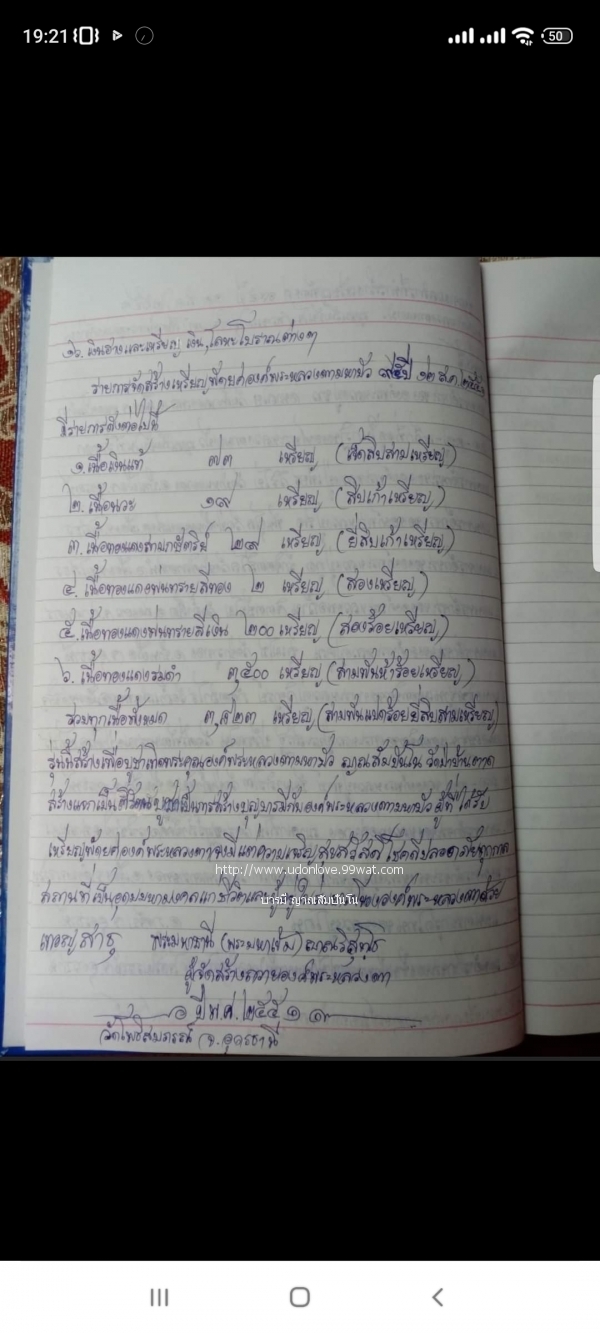 19:21
50
๑๖. เงินฮางและเหรียญ เงิน, โลหะโบราณต่างๆ
รายการจัดสร้างเหรียญที่ถวายองค์พระหลวงตามหาบัว ๑๒ ส.ค.
มีรายการดังต่อไปนี้
๑. เนื้อเงินแท้ ๗๓ เหรียญ (เจ็ดสิบสามเหรียญ)
๒. เนื้อนวะ ๑๙ เหรียญ (สิบเก้าเหรียญ)
๓. เนื้อทองแดงสามกษัตริย์ ๒๙ เหรียญ (ยี่สิบเก้าเหรียญ)
๔. เนื้อทองแดงพ่นทรายสีทอง ๒ เหรียญ (สองเหรียญ)
๕. เนื้อทองแดงพ่นทรายสีเงิน ๒๐๐ เหรียญ (สองร้อยเหรียญ)
๖. เนื้อทองแดงรมดำ ๓,๕๐๐ เหรียญ (สามพันห้าร้อยเหรียญ)
รวมทุกเนื้อทั้งหมด ๓,๘๒๓ เหรียญ (สามพันแปดร้อยยี่สิบสามเหรียญ)
รุ่นนี้สร้างเพื่อบูชาพระคุณองค์พระหลวงตามหาบัว ญาณสัมปันโน วัดป่าบ้านตาด
สร้างแจกเป็น เป็นการสร้างบุญบารมีกับองค์พระหลวงตามหาบัว ผู้ที่ได้รับ
เหรียญ องค์พระหลวงตาจงมีแต่ความเจริญสุขสวัสดี โชคดีปลอดภัยทุกกาล
http://www.udonlove.99wat.com
สถานที่เป็นอุดมมหามงคลแก่ชีวิตและ ขององค์พระหลวงตาด้วย
บารมี ญาณสัมปันโน
เทอญ สาธุ พระมหาธานี
ผู้จัดสร้างถวายองค์พระหลวงตา
ปี พ.ศ. ๒๕๕๑
วัดโพธิสมภรณ์ จ.อุดรธานี